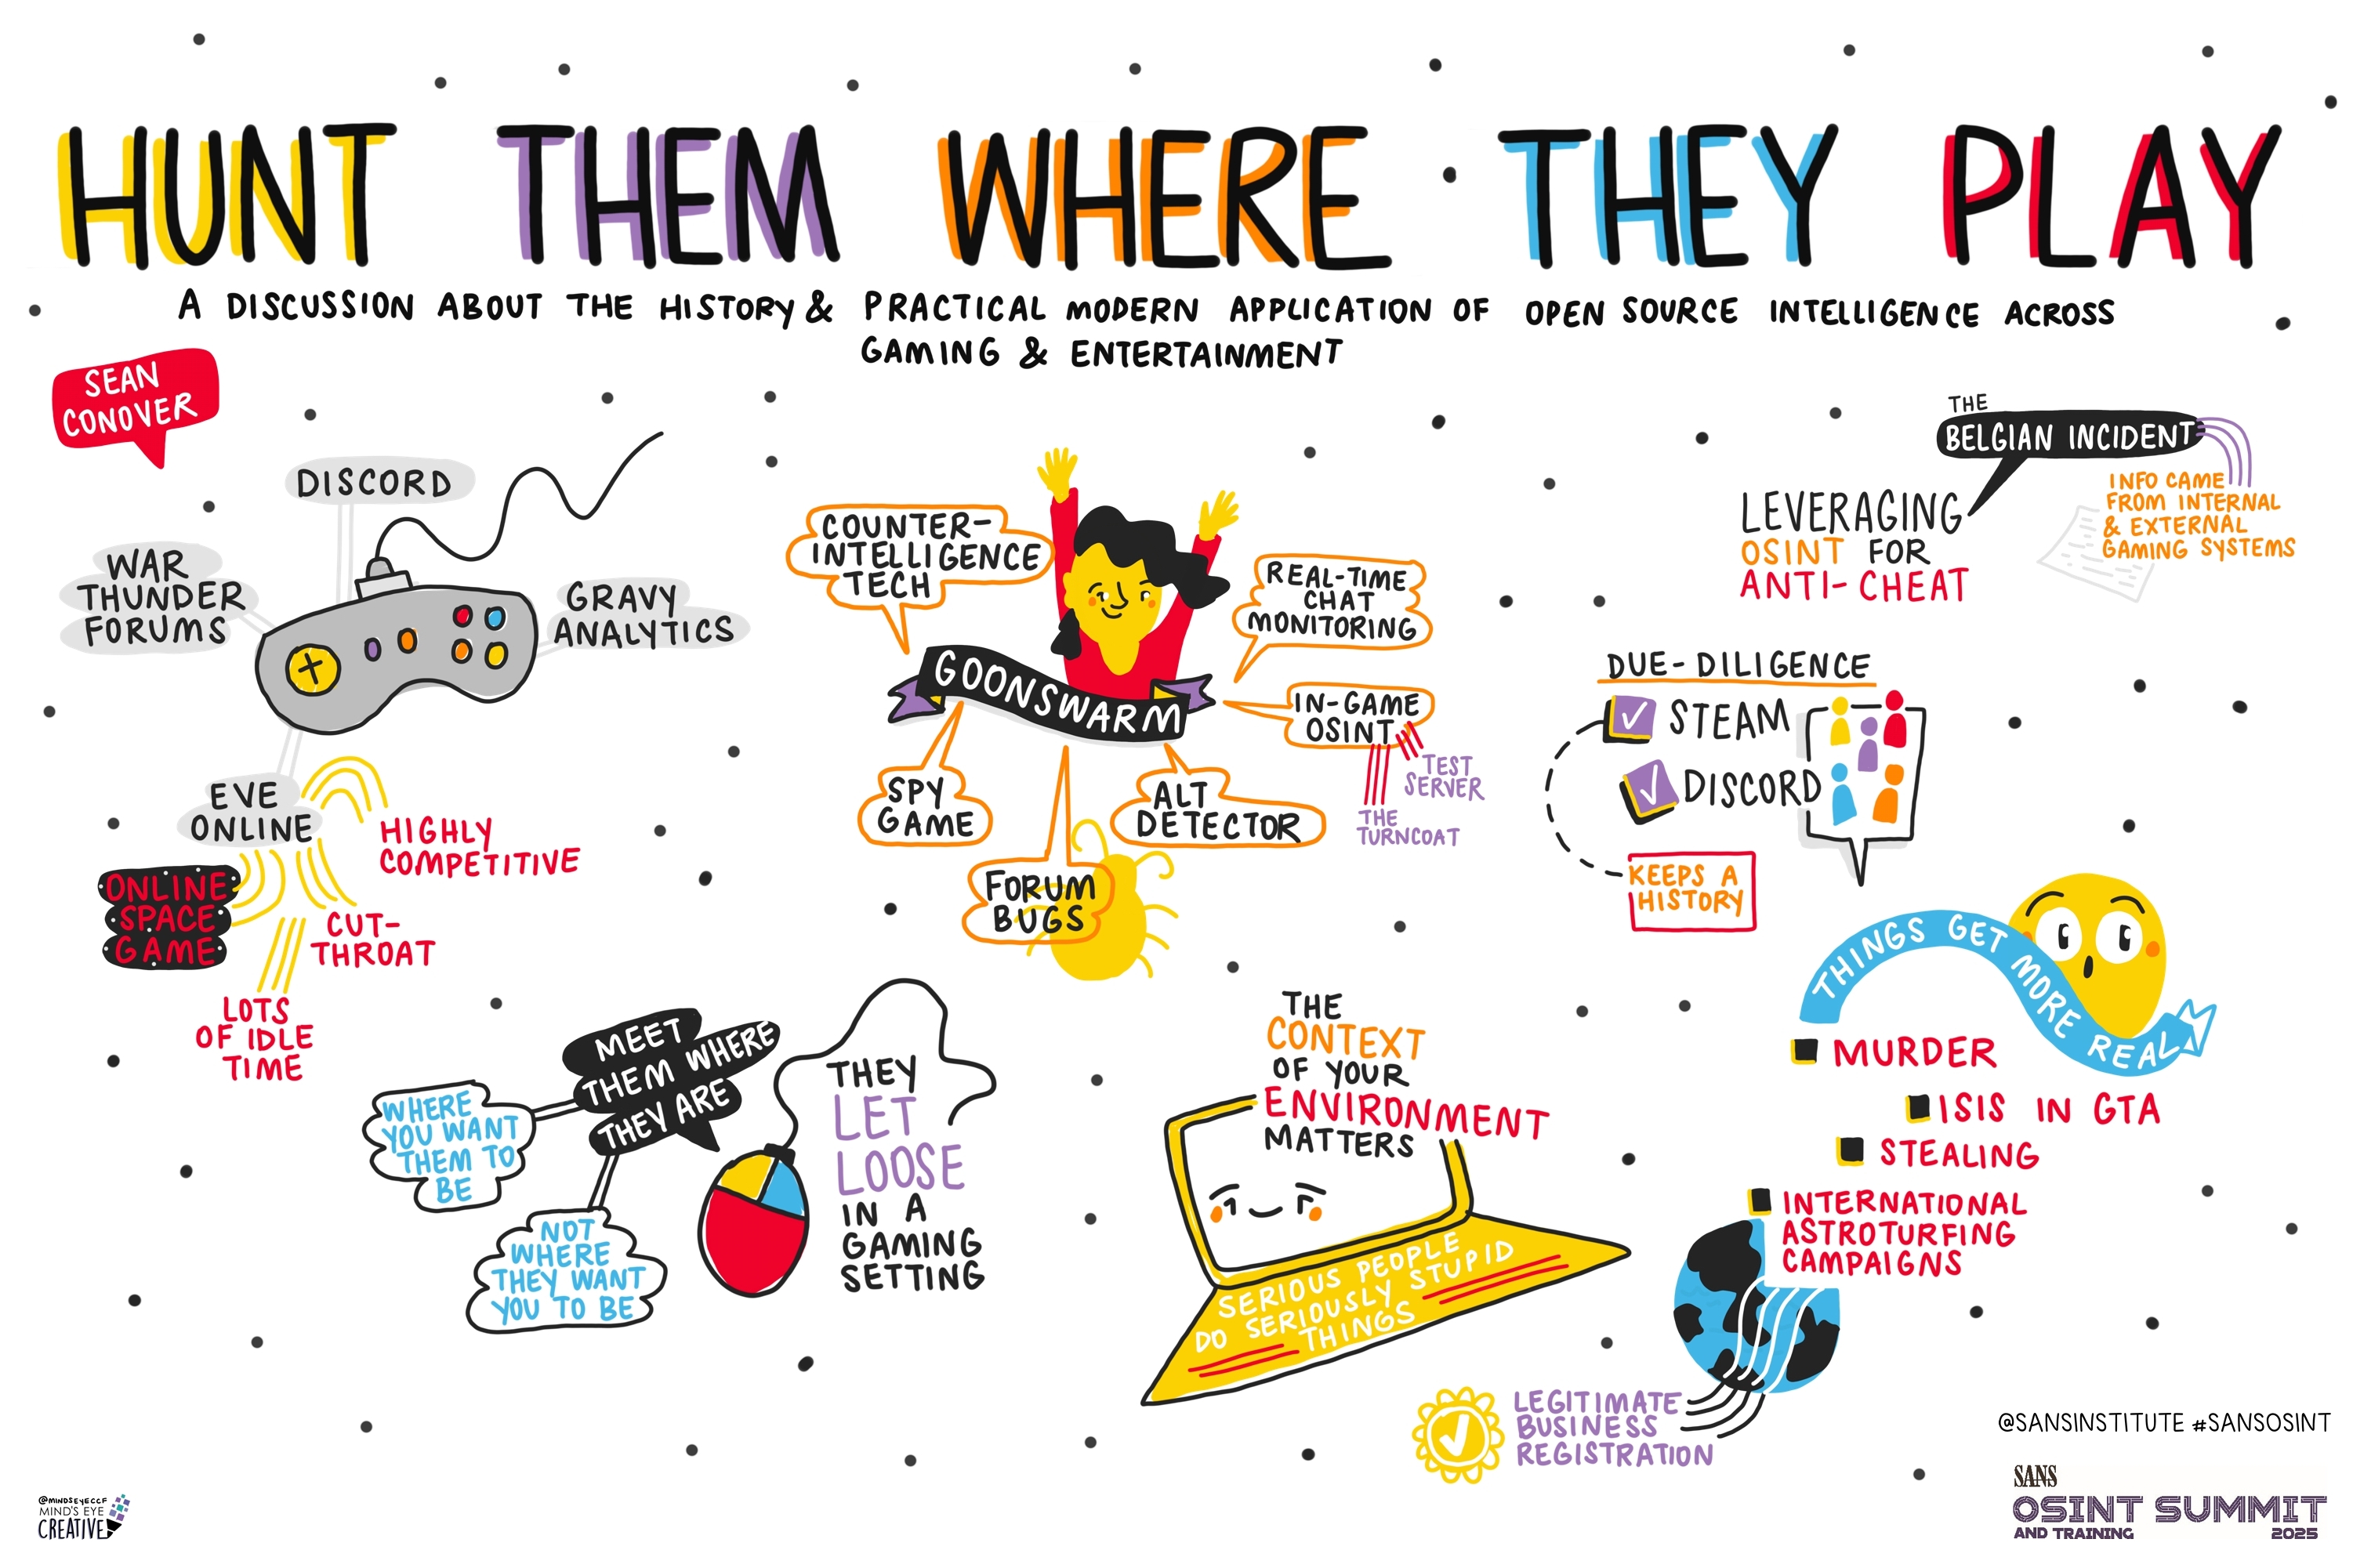 HUNT THEM WHERE THEY PLAY
A DISCUSSION ABOUT THE HISTORY & PRACTICAL MODERN APPLICATION OF OPEN SOURCE INTELLIGENCE ACROSS
GAMING & ENTERTAINMENT
SEAN
CONOVER
DISCORD
WAR
THUNDER
FORUMS
GRAVY
ANALYTICS
EVE
ONLINE
HIGHLY
COMPETITIVE
ONLINE
SPACE
GAME
CUT-
THROAT
LOTS
OF IDLE
TIME
COUNTER-
INTELLIGENCE
TECH
REAL-TIME
CHAT
MONITORING
GOONSWARM
IN-GAME
OSINT
TEST
SERVER
THE
TURNCOAT
SPY
GAME
ALT
DETECTOR
FORUM
BUGS
THE
BELGIAN INCIDENT
INFO CAME
FROM INTERNAL
& EXTERNAL
GAMING SYSTEMS
LEVERAGING
OSINT FOR
ANTI-CHEAT
DUE-DILIGENCE
STEAM
DISCORD
KEEPS A
HISTORY
THINGS GET MORE REAL
MURDER
ISIS IN GTA
STEALING
INTERNATIONAL
ASTROTURFING
CAMPAIGNS
MEET
THEM WHERE
THEY ARE
WHERE
YOU WANT
THEM TO
BE
NOT
WHERE
THEY WANT
YOU TO BE
THEY
LET
LOOSE
IN A
GAMING
SETTING
THE
CONTEXT
OF YOUR
ENVIRONMENT
MATTERS
SERIOUS PEOPLE
DO SERIOUSLY STUPID
THINGS
LEGITIMATE
BUSINESS
REGISTRATION
@SANSINSTITUTE #SANSOSINT
SANS
OSINT SUMMIT
AND TRAINING 2025
@MINDSEYECCF
MIND'S EYE
CREATIVE